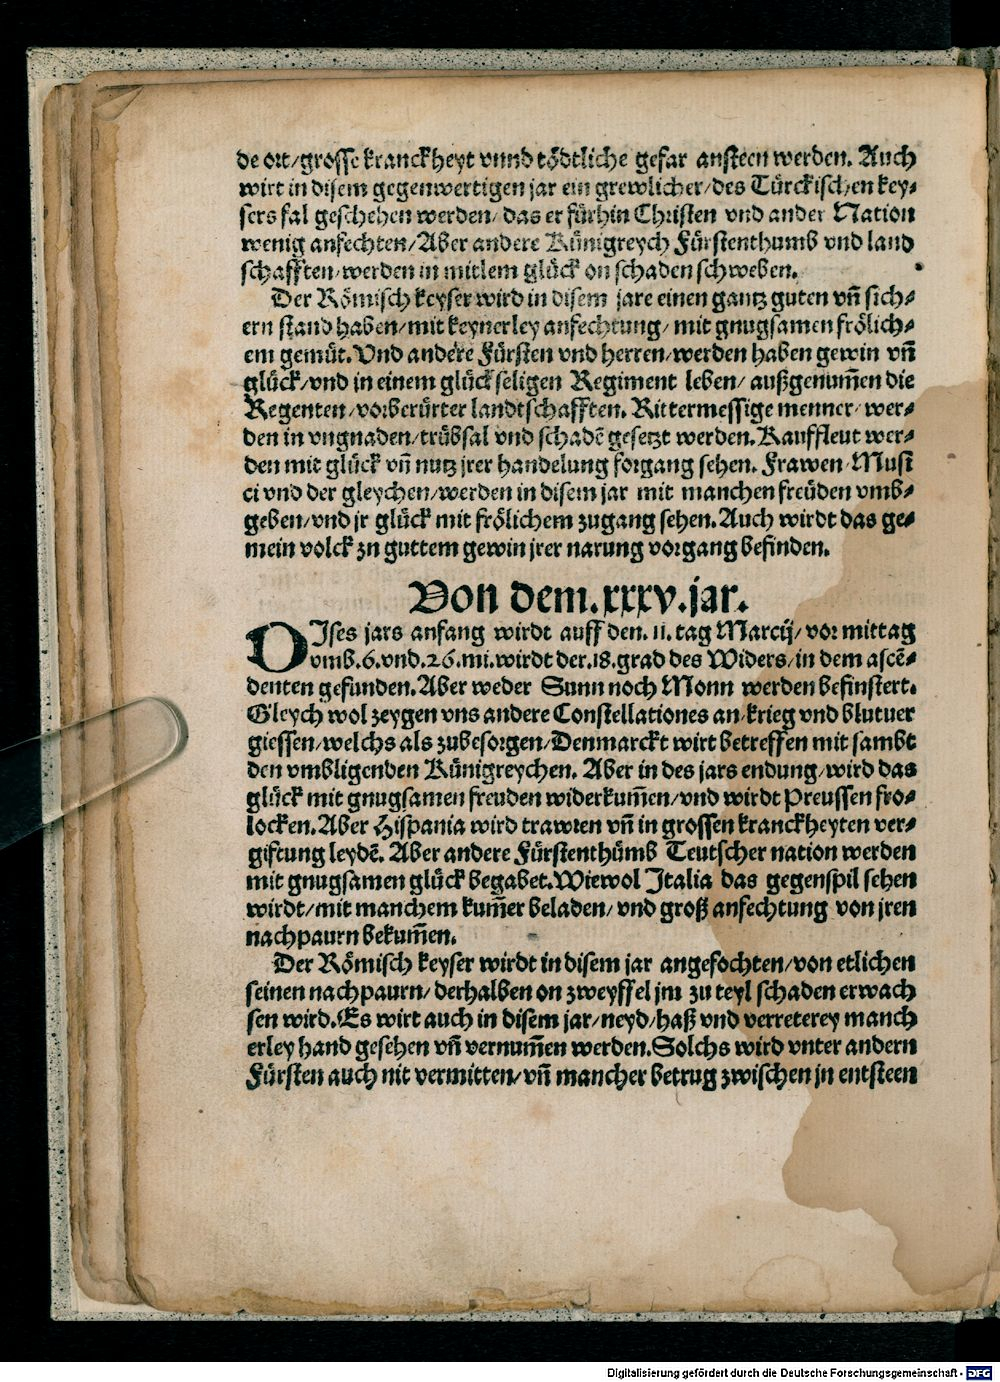 de ort/grosse kranckheyt vnnd tödtliche gefar ansteen werden. Auch
wirt in disem gegenwertigen jar ein grewlicher/des Türckischen key⸗
sers fal geschehen werden/ das er fürhin Christen vnd ander Nation
wenig anfechten/Aber andere Künigreych Fürstenthumb vnd land
schafften/werden in mitlem glück on schaden schweben.
Der Römisch keyser wird in disem jare einen gantz guten vñ sich⸗
ern stand haben/mit keynerley anfechtung/ mit gnugsamen frölich⸗
em gemüt. Vnd andere Fürsten vnd herren/werden haben gewin vñ
glück/vnd in einem glückseligen Regiment leben/ außgenum̃en die
Regenten/vorberürter landtschafften. Rittermessige menner/ wer⸗
den in vngnaden/trübsal vnd schadē gesetzt werden. Kauffleut wer⸗
den mit glück vñ nutz jrer handelung forgang sehen. Frawen/Musi
ci vnd der gleychen/werden in disem jar mit manchen freüden vmb⸗
geben/vnd jr glück mit frölichem zugang sehen. Auch wirdt das ge⸗
mein volck zn guttem gewin jrer narung vorgang befinden.
Von dem.xxxv.jar.
DIses jars anfang wirdt auff den. 11. tag Marcij/ vor mittag
vmb.6.vnd.26.mi.wirdt der.18.grad des Widers/in dem ascē⸗
denten gefunden. Aber weder Sunn noch Monn werden befinstert.
Gleych wol zeygen vns andere Constellationes an/krieg vnd blutuer
giessen/welchs als zubesorgen/Denmarckt wirt betreffen mit sambt
den vmbligenden Künigreychen. Aber in des jars endung/wird das
glück mit gnugsamen freuden widerkum̃en/vnd wirdt Preussen fro⸗
locken. Aber Hispania wird trawren vñ in grossen kranckheyten ver⸗
gifftung leydē. Aber andere Fürstenthümb Teutscher nation werden
mit gnugsamen glück begabet. Wiewol Italia das gegenspil sehen
wirdt/mit manchem kum̃er beladen/ vnd groß anfechtung von jren
nachpaurn bekum̃en.
Der Römisch keyser wirdt in disem jar angefochten/von etlichen
seinen nachpaurn/ derhalben on zweyffel jm zu teyl schaden erwach
sen wird. Es wirt auch in disem jar/neyd/haß vnd verreterey manch
erley hand gesehen vñ vernum̃en werden. Solchs wird vnter andern
Fürsten auch nit vermitten/ vñ mancher betrug zwischen jn entsteen
Digitalisierung gefördert durch die Deutsche Forschungsgemeinschaft - DFG